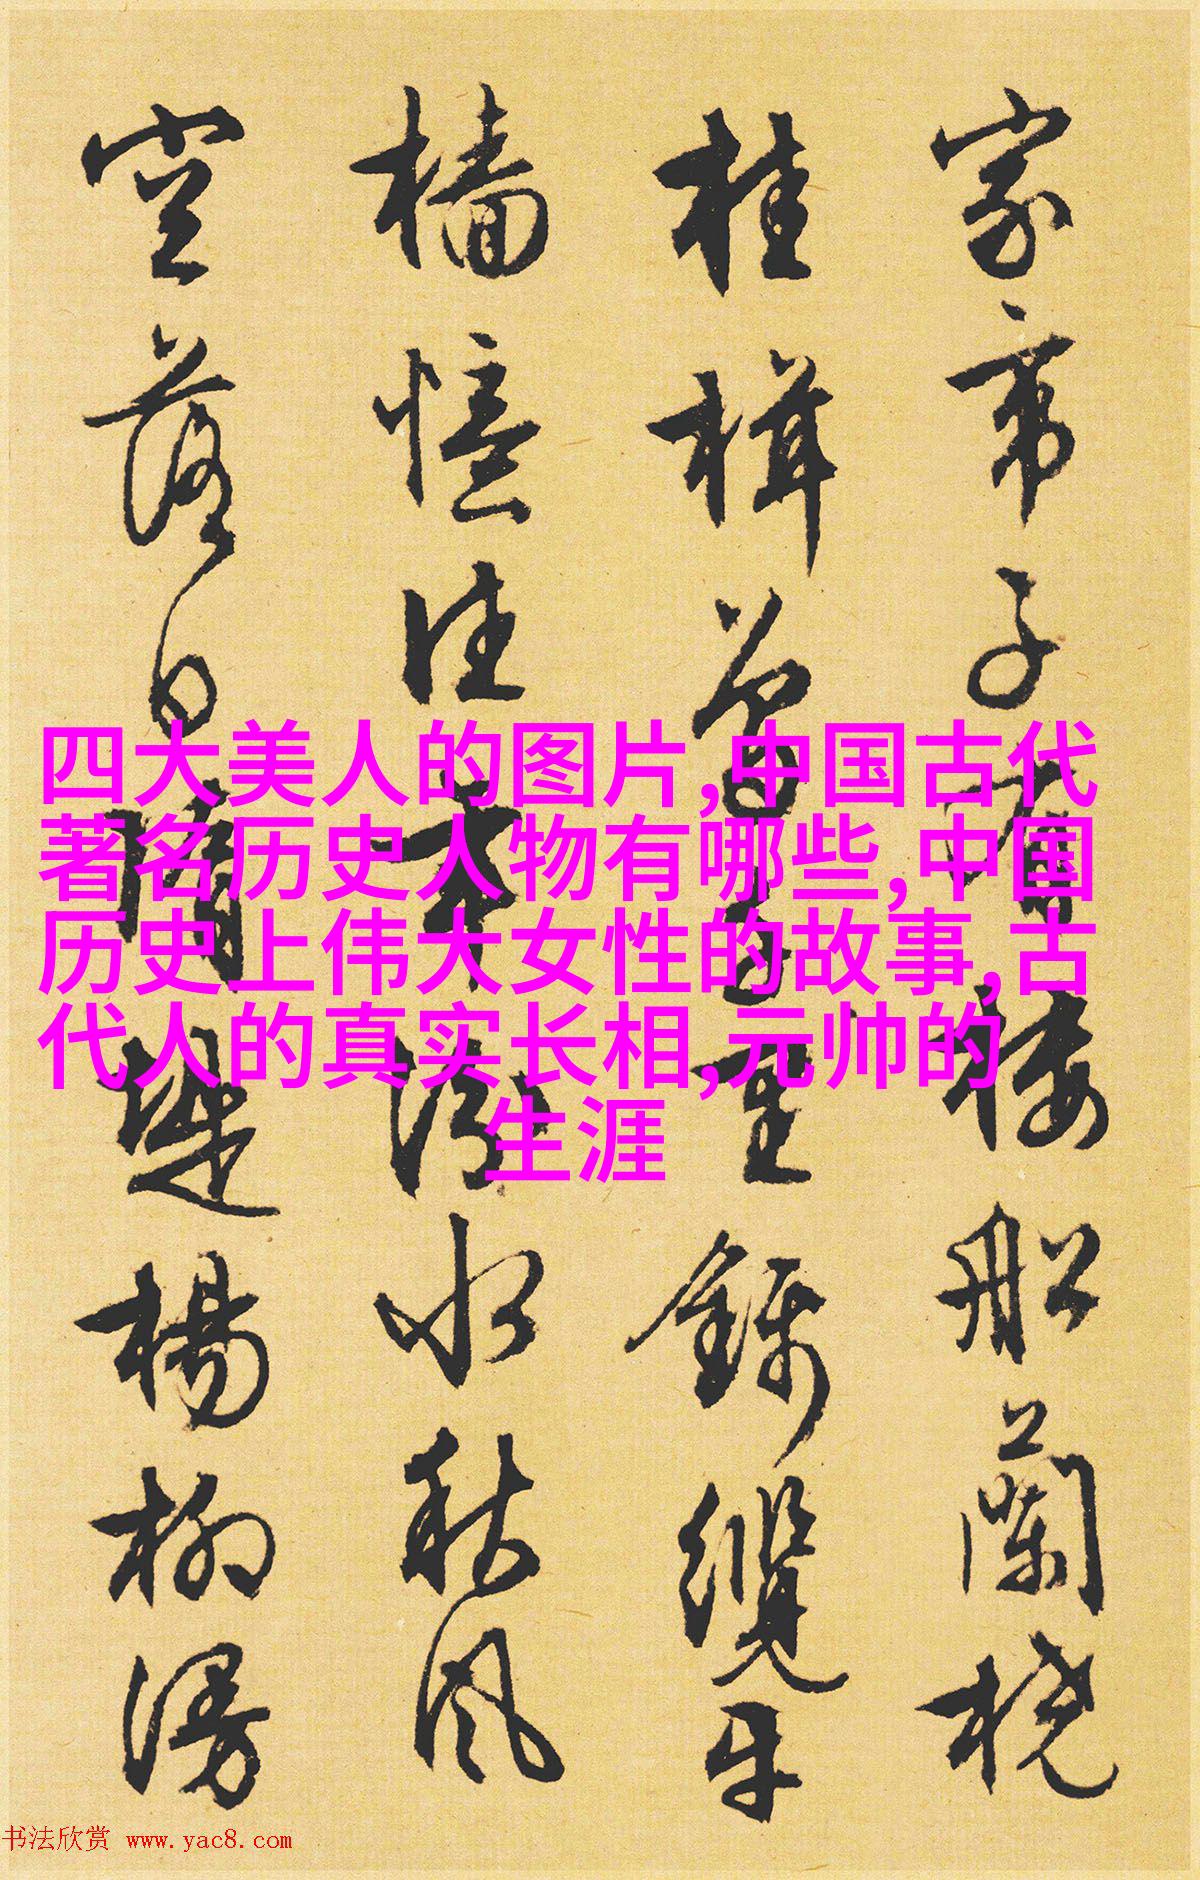 家帝子樓船蘭橈
桂楫曾重錦纜牙
檣憶往年水秋風
空落日隋堤楊柳漫
四大美人的图片,中国古代
著名历史人物有哪些,中国
历史上伟大女性的故事,古
代人的真实长相,元帅的
生涯
书法欣赏 www.yac8.com